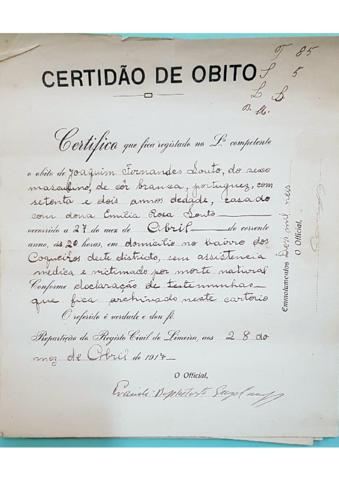 T 85
S 5
L B
B. M.
CERTIDÃO DE OBITO
Certifico que fica registado no L.º competente
o obito de Joaquim Fernandes Souto, do sexo
masculino, de côr branca, portuguez, com
setenta e dois annos dedade, casado
com dona Emilia Rosa Souto
occorrido a 27 do mez de Abril do corrente
anno, ás 20 horas, em domicilio no bairro dos
Coqueiros deste districto, sem assistencia
medica e victimado por morte natural
Conforme declaração de testemunhas
que fica archivado neste cartorio
O referido é verdade e dou fé.
Repartição do Registo Civil de Limeira, aos 28 do
mez de Abril de 1917
O Official,
Emolumentos Dos mil reis
O Official